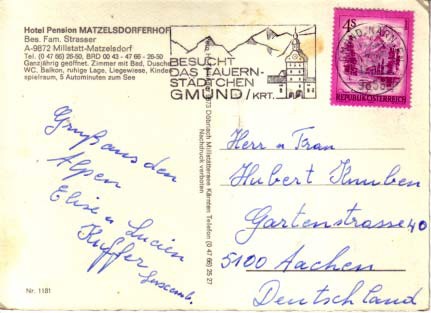 Hotel Pension MATZELSDORFERHOF
Bes. Fam. Strasser
A-9872 Millstatt-Matzelsdorf
Tel. (0 47 66) 26-50, BRD 00 43 - 47 66 - 26-50
Ganzjährig geöffnet. Zimmer mit Bad, Dusche
WC. Balkon, ruhige Lage, Liegewiese, Kinder
spielraum, 5 Autominuten zum See
BESUCHT
DAS TAUERN-
STÄDTCHEN
GMÜND/KRT.
4S
REPUBLIK ÖSTERREICH
Gruß aus den
Alpen
Elise u Lucien
Kuffer
Luxemb.
Döbriach Millstättersee Kärnten Telefon (0 47 66) 25 27
Nachdruck verboten
Herr u Frau
Hubert Knuben
Gartenstrasse 40
5100 Aachen
Deutschland
Nr. 1181